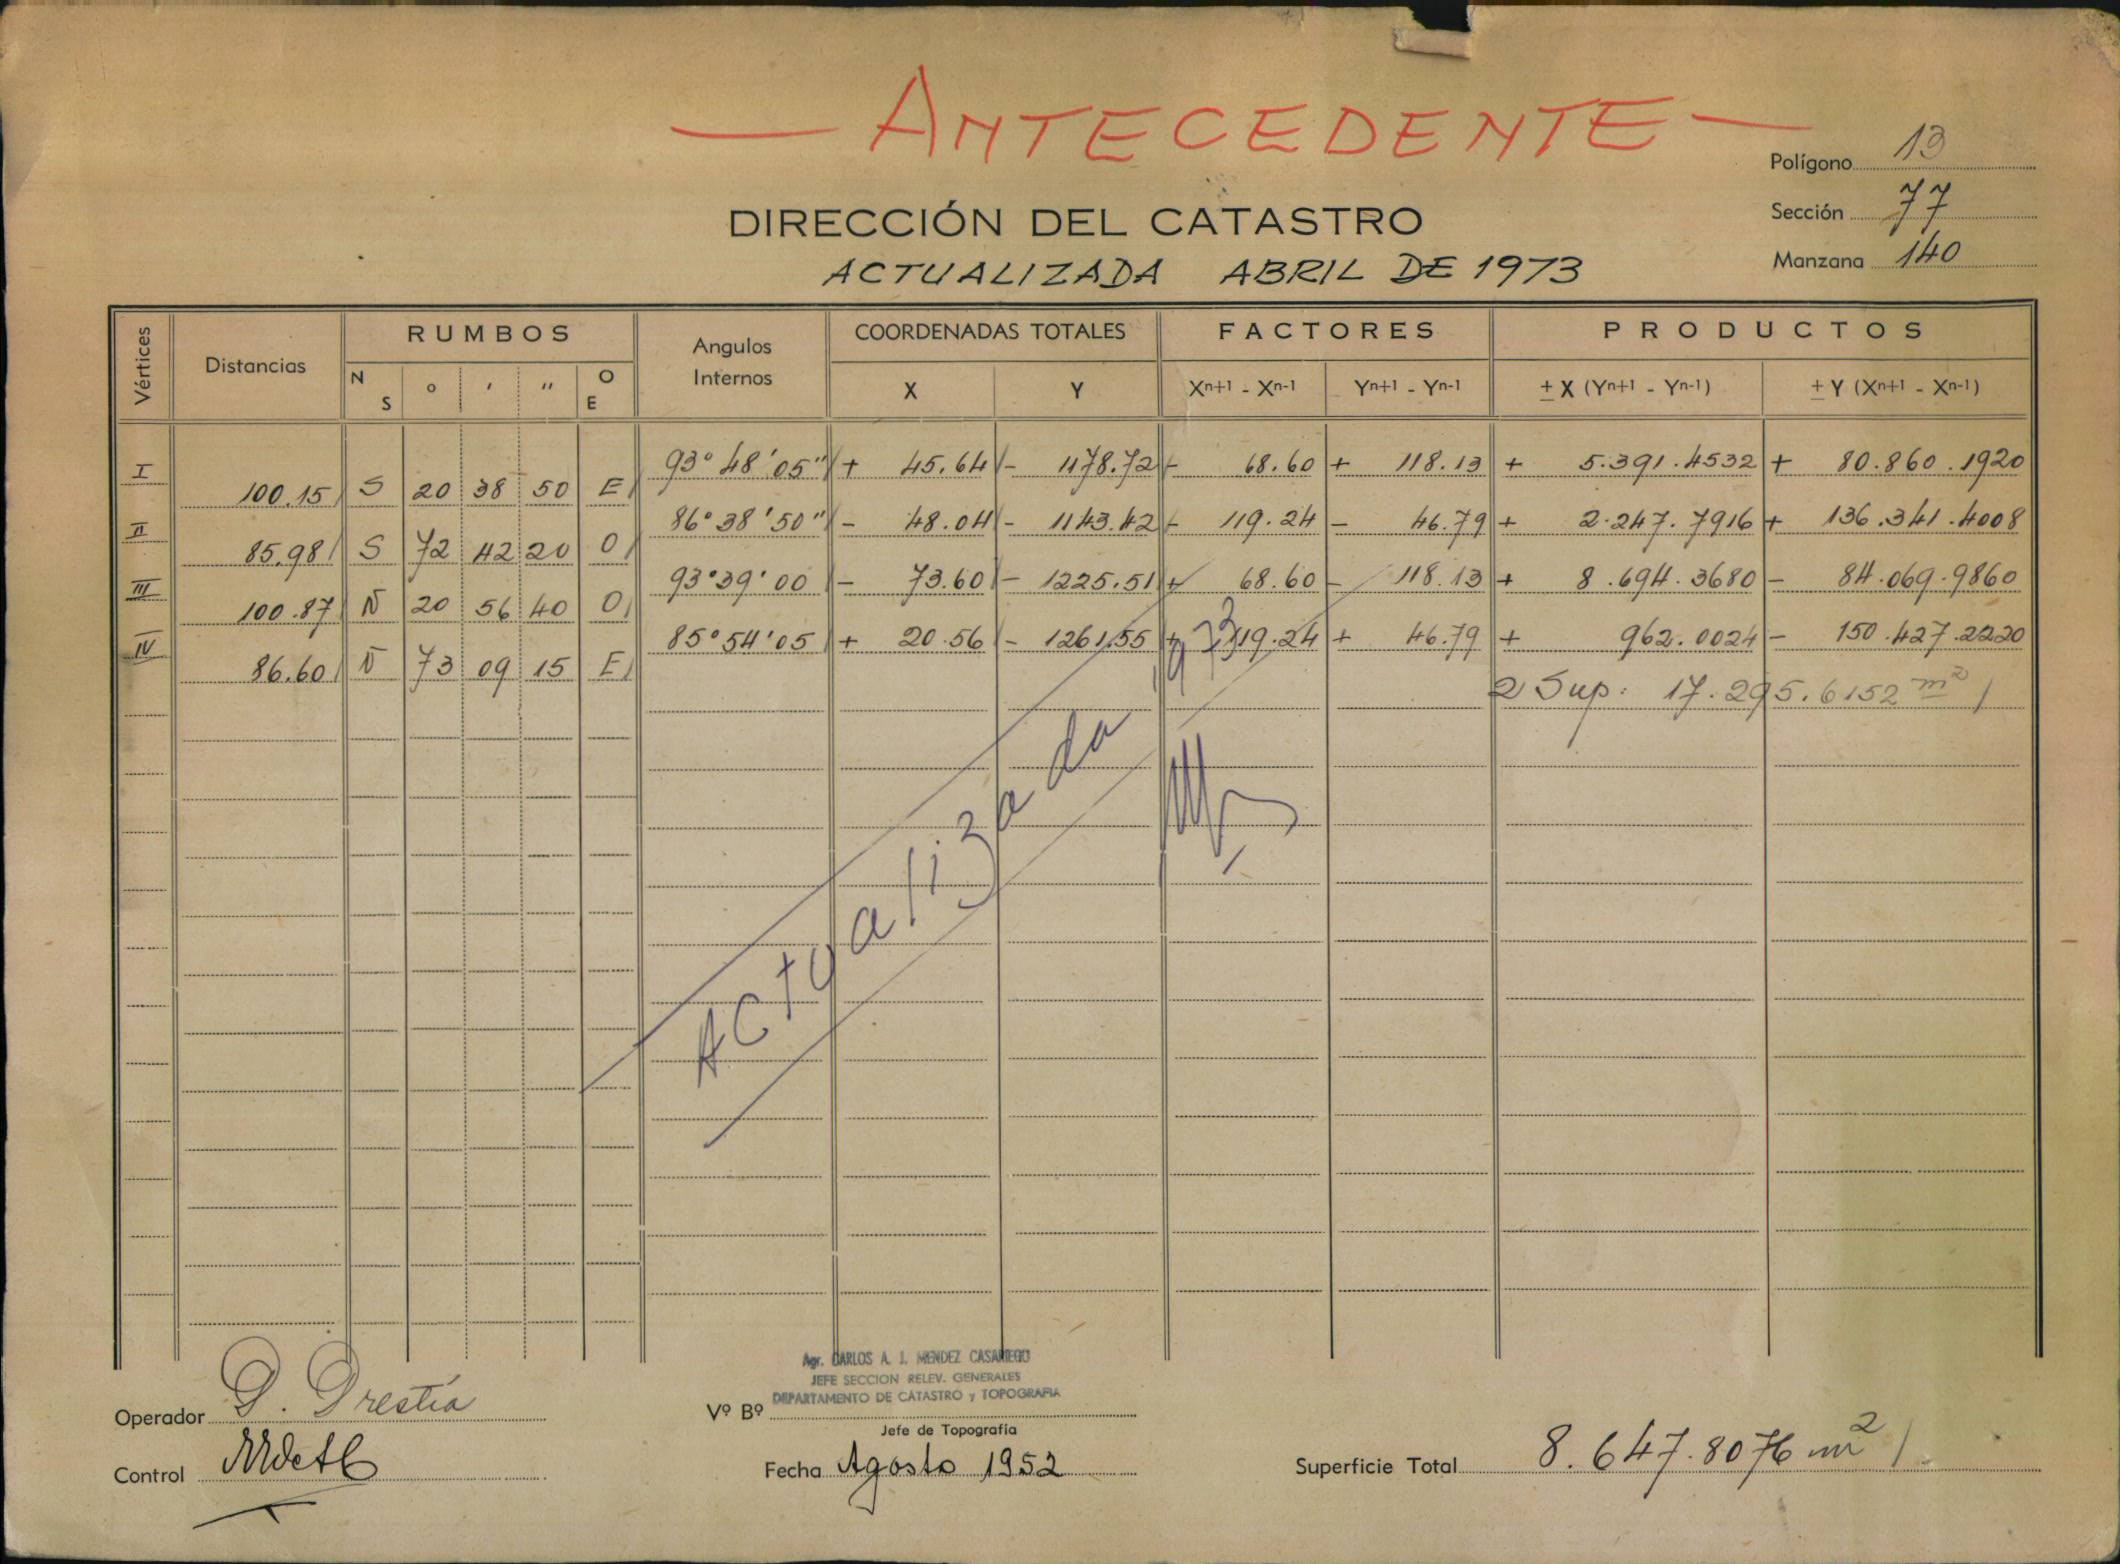 — ANTECEDENTE —
Polígono 13
DIRECCIÓN DEL CATASTRO
Sección 77
ACTUALIZADA ABRIL DE 1973
Manzana 140
Vértices Distancias RUMBOS Angulos Internos COORDENADAS TOTALES FACTORES PRODUCTOS
N S o ' '' O E X Y Xn+1 - Xn-1 Yn+1 - Yn-1 ± X (Yn+1 - Yn-1) ± Y (Xn+1 - Xn-1)
I 93° 48' 05" + 45.64 - 1178.72 - 68.60 + 118.13 + 5.391.4532 + 80.860.1920
100.15 S 20 38 50 E
II 86° 38' 50" - 48.04 - 1143.42 - 119.24 - 46.79 + 2.247.7916 + 136.341.4008
85.98 S 72 42 20 O
III 93° 39' 00 - 73.60 - 1225.51 + 68.60 - 118.13 + 8.694.3680 - 84.069.9860
100.87 N 20 56 40 O
IV 85° 54' 05 + 20.56 - 1261.55 + 119.24 + 46.79 + 962.0024 - 150.427.2220
86.60 N 73 09 15 E
2 Sup: 17.295.6152 m²
Actualizada 1973
Agr. CARLOS A. J. MENDEZ CASARIEGO
JEFE SECCION RELEV. GENERALES
DEPARTAMENTO DE CATASTRO y TOPOGRAFIA
Operador
Vº Bº
Jefe de Topografía
Control
Fecha Agosto 1952
Superficie Total 8.647.8076 m²